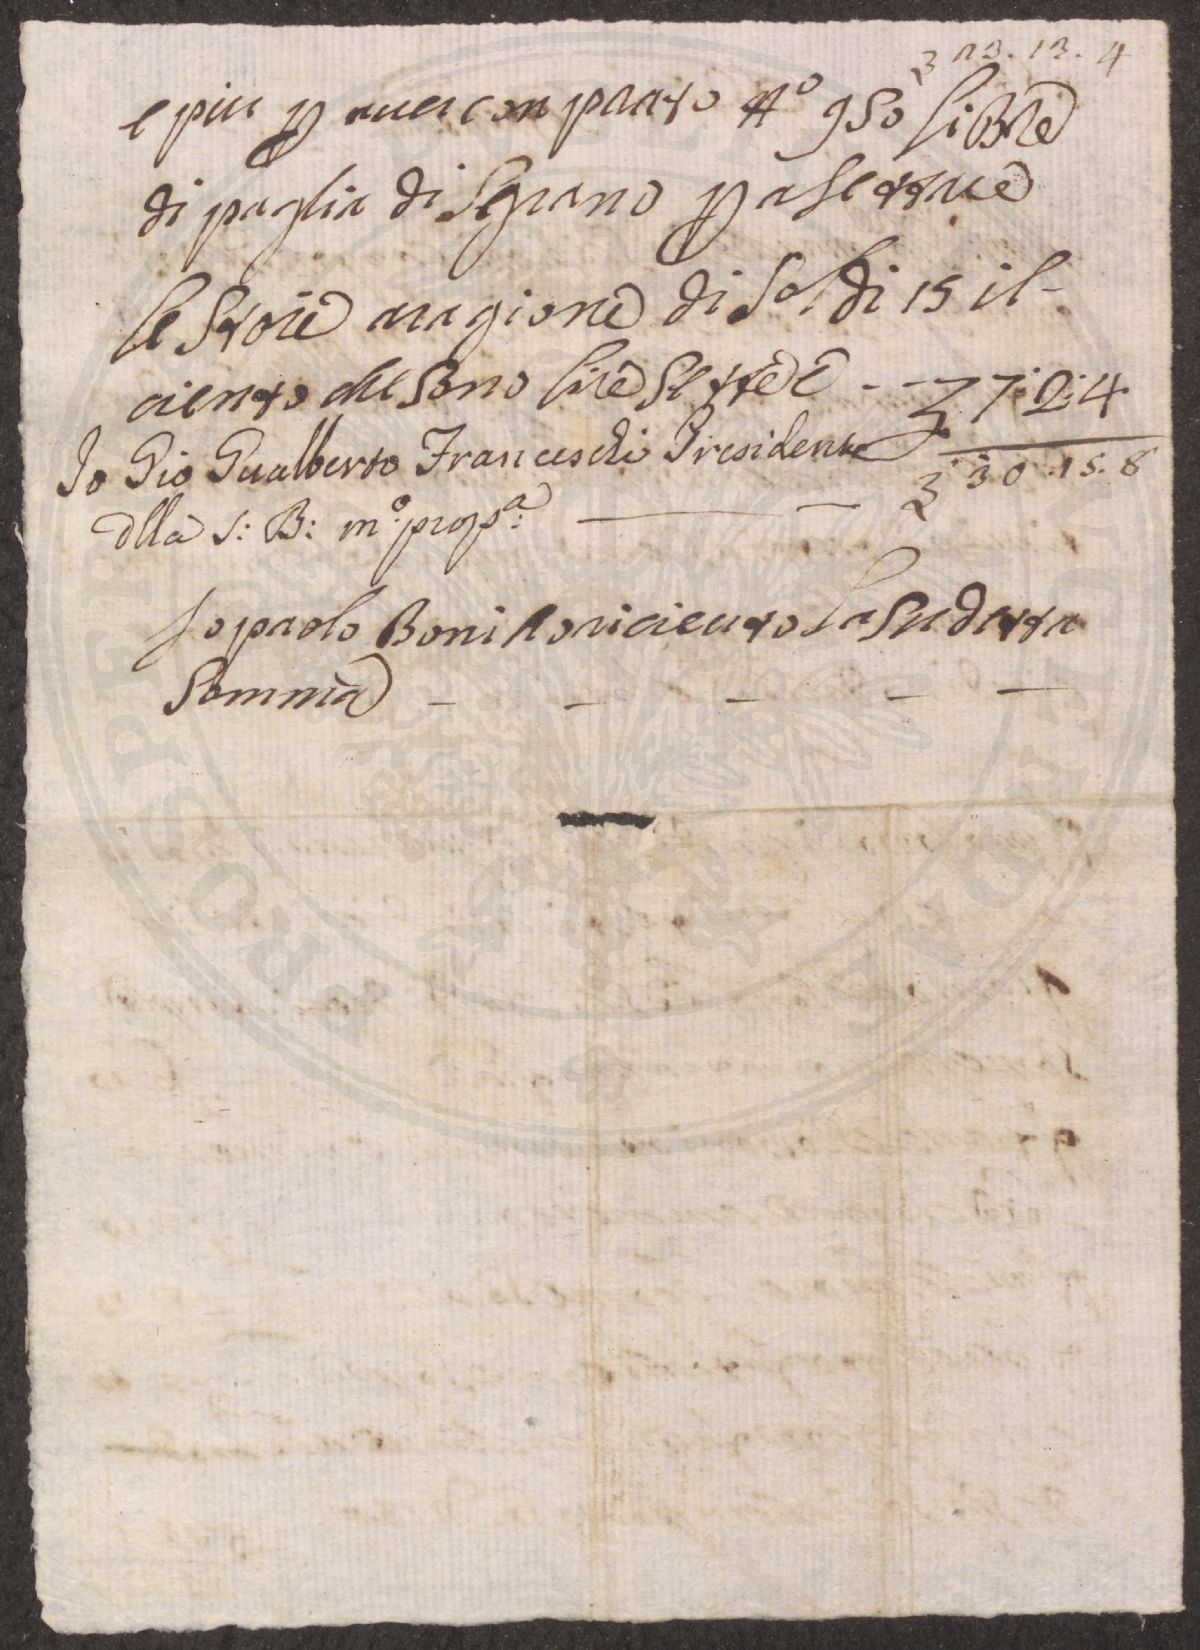 ₤ 23. 13. 4
e piu p auer conprato No 950 libre
di paglia di Segrano p asettare
le Store aragione di Soldi 15 il-
ciento che Sono lire Sette e - - ₤ 7:2:4
Io Gio Gualberto Franceschi Presidente
dlla S: B: mo: propa: — — ₤ 30. 15. 8
Io paolo Boni Ò ricieuto La Sudetta
Somma - - - - —